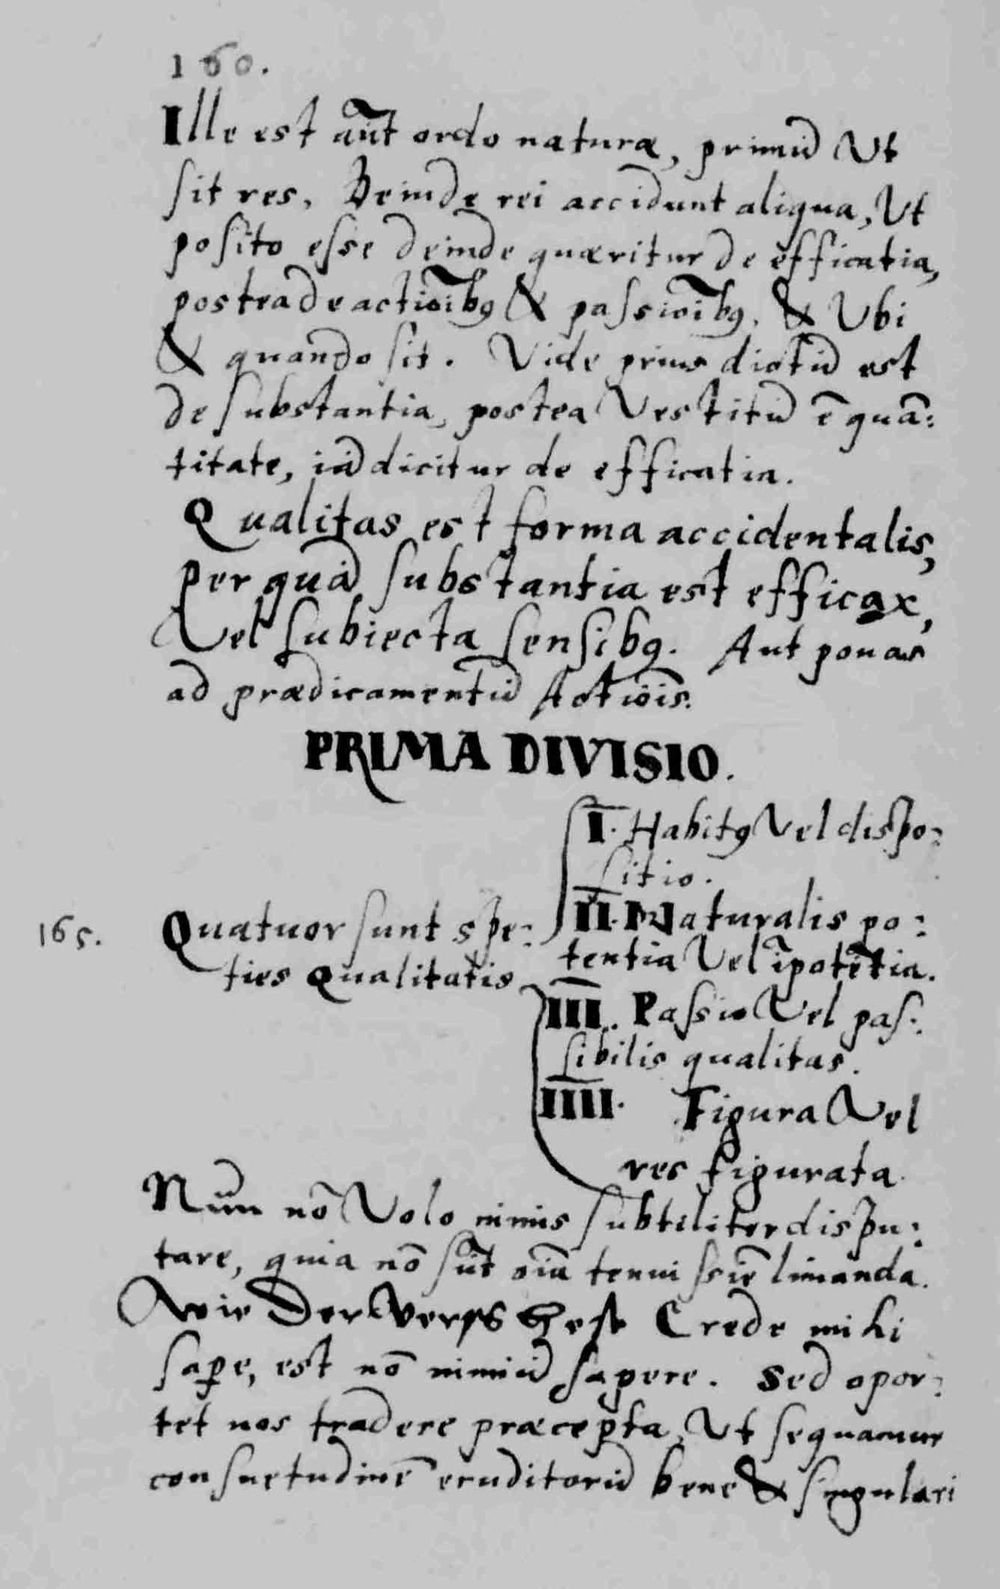 160.
Ille est aūt ordo naturæ, primū Ut
sit res, Deinde rei accidunt aliqua, Ut
posito esse deinde quæritur de efficatia,
postea de actiōibꝰ & passiōibꝰ, & Ubi
& quando sit. Vide prius dictū est
de substantia, postea Vestitū ē quā:
titate, iā dicitur de efficatia.
Qualitas est forma accidentalis,
per quā substantia est efficax,
Vel subiecta sensibꝰ. Aut ponas
ad prædicamentū Actiōis.
PRIMA DIVISIO.
I. Habitꝰ Vel dispo:
sitio.
II. Naturalis po:
165. Quatuor sunt spe:
tentia Vel īpotētia.
ties qualitatis
III. Passio Vel pas:
sibilis qualitas.
IIII. Figura Vel
res figurata.
Nūn nō Volo nimis subtiliter dispu:
tare, quia nō sūt oīa tenuissiē limanda.
Wie Der Verss hest Crede mihi
saꝑe, est nō nimiū sapere. Sed opor:
tet nos tradere præcepta, Ut sequamur
consuetudinē eruditorū bene & singulari